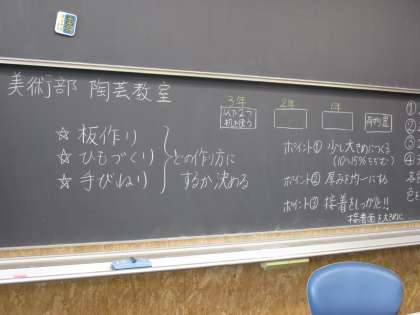 美術部 陶芸教室
☆ 板作り
☆ ひもづくり
☆ 手びねり
どの作り方に
するか決める
3年
2年
1年
机を使う
ポイント① 少し大きめにつくる
(10~15%ちぢむ)
ポイント② 厚みを均一にする
ポイント③ 接着をしっかり!!
接着面を大きめに
①
②
③
④